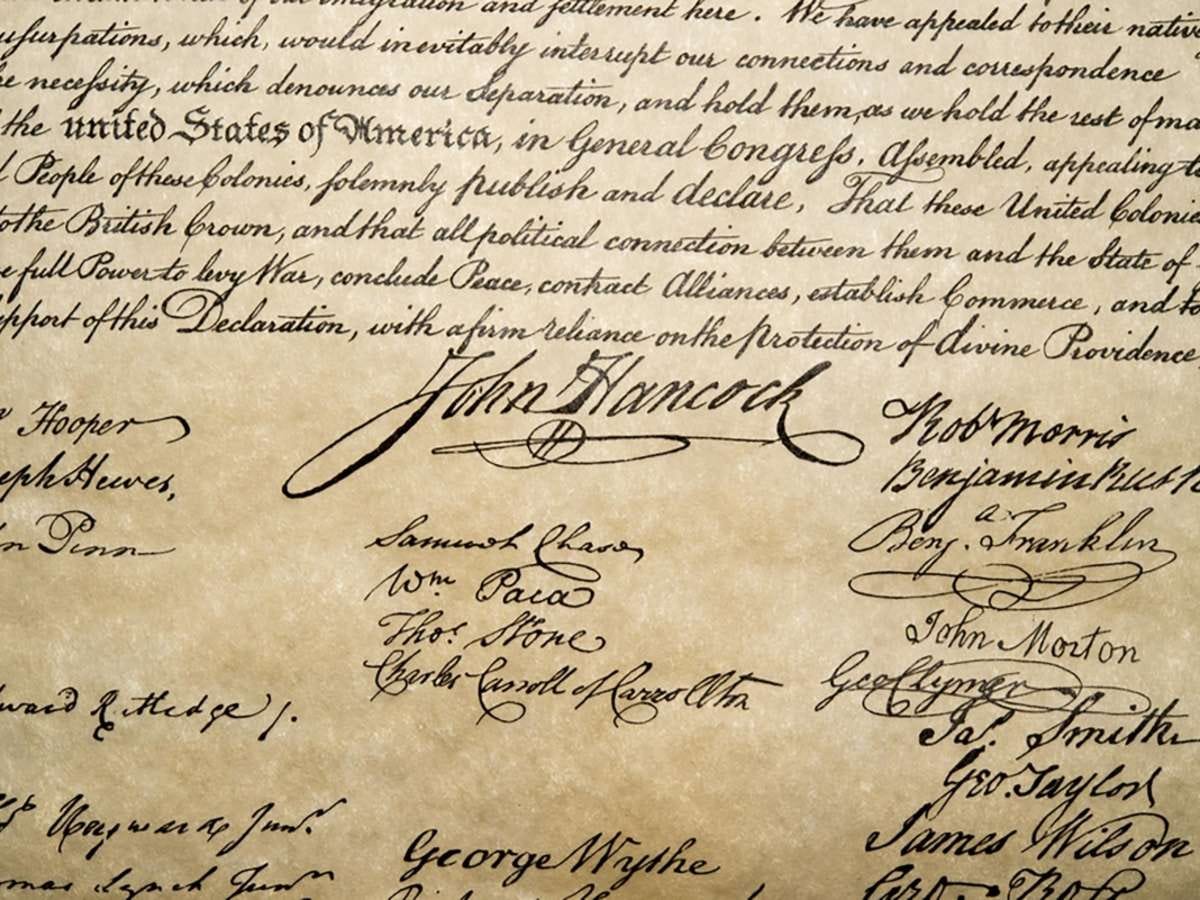 of our emigration and settlement here . We have appealed to their native
usurpations, which, would inevitably interrupt our connections and correspondence
e neceſsity, which denounces our Separation, and hold them, as we hold the rest of ma
the united States of America, in General Congreſs, Aſsembled, appealing to
l People of these Colonies, solemnly publish and declare, That these United Colonies
to the British Crown, and that all political connection between them and the State of
e full Power to levy War, conclude Peace, contract Alliances, establish Commerce, and to
upport of this Declaration, with a firm reliance on the protection of divine Providence,
John Hancock
Hooper
eph Hewes,
n Penn
ward Rutledge /.
Heyward Junr.
omas Lynch Junr
Samuel Chase
Wm. Paca
Thos. Stone
Charles Carroll of Carrollton
George Wythe
Robt Morris
Benjamin Rush
Benj. Franklin
John Morton
Geo Clymer
Jas. Smith
Geo. Taylor
James Wilson
Geo. Ross